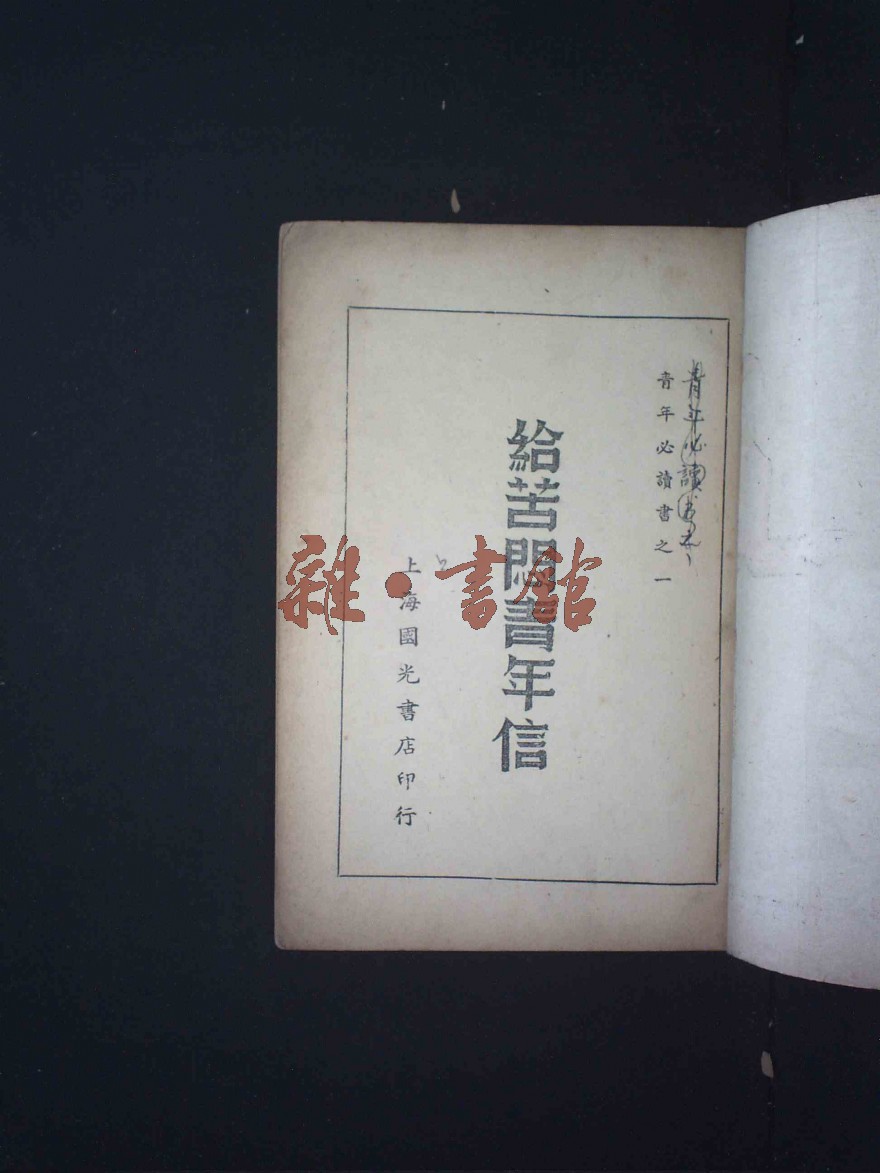 青年必讀書之一
青年必讀書之一
給苦悶青年信
上海國光書店印行
雜·書館